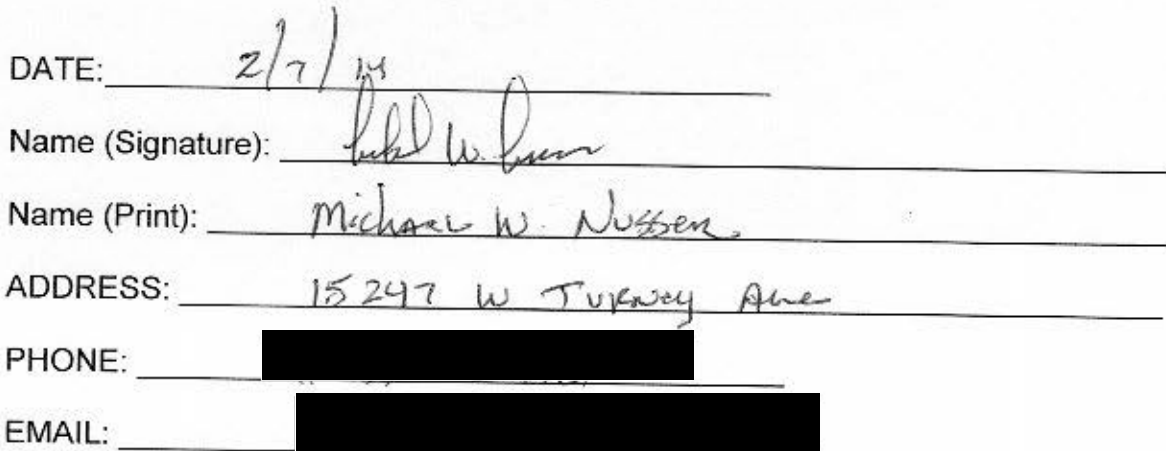 DATE: 2/7/14
Name (Signature):
Name (Print): Michael W. Nusser
ADDRESS: 15247 W Turney Ave
PHONE:
EMAIL: